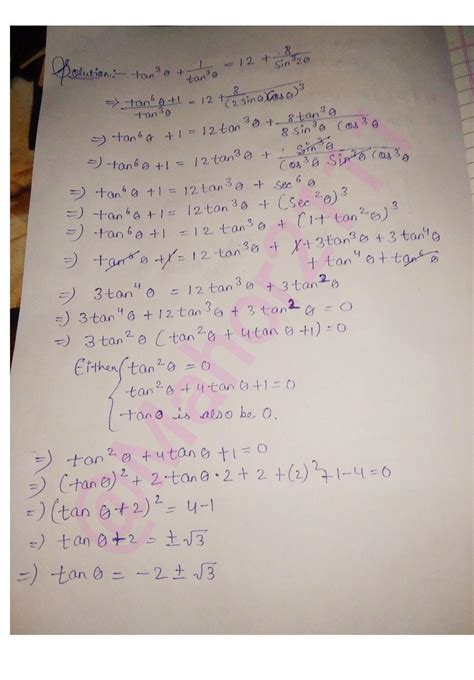 Solution:- tan³θ + 1/tan³θ = 12 + 8/sin³2θ
⇒ tan⁶θ+1/tan³θ = 12 + 8/(2sinθcosθ)³
⇒ tan⁶θ + 1 = 12tan³θ + 8tan³θ/8sin³θ cos³θ
⇒ tan⁶θ + 1 = 12tan³θ + sin³θ/cos³θ sin³θ cos³θ
⇒ tan⁶θ + 1 = 12tan³θ + sec⁶θ
⇒ tan⁶θ + 1 = 12tan³θ + (sec²θ)³
⇒ tan⁶θ + 1 = 12tan³θ + (1+tan²θ)³
⇒ tan⁶θ + 1 = 12tan³θ + 1 + 3tan³θ + 3tan⁴θ
+ tan⁴θ + tan⁶θ
⇒ 3tan⁴θ = 12tan³θ + 3tan²θ
⇒ 3tan⁴θ + 12tan³θ + 3tan²θ = 0
⇒ 3tan²θ (tan²θ + 4tanθ + 1) = 0
Either { tan²θ = 0
tan²θ + 4tanθ + 1 = 0
tanθ is also be 0.
⇒ tan²θ + 4tanθ + 1 = 0
⇒ (tanθ)² + 2·tanθ·2 + 2 + (2)² + 1 - 4 = 0
⇒ (tanθ + 2)² = 4-1
⇒ tanθ + 2 = ±√3
⇒ tanθ = -2 ± √3